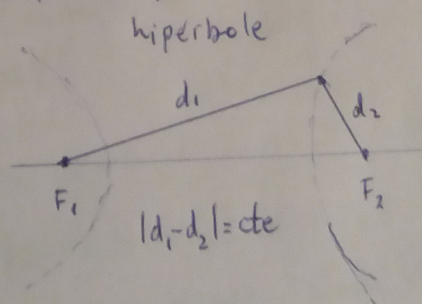 hiperbole
d₁
d₂
F₁
F₂
|d₁-d₂|=cte